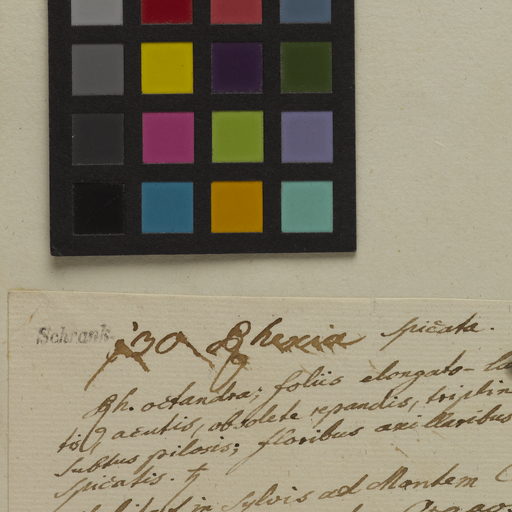 Schrank
130 Rhexia spicata.
Rh. octandra; foliis elongato-
acutis, obsolete repandis,
subtus pilosis; floribus axillaribus
spicatis.
in Sylvis ad Montem